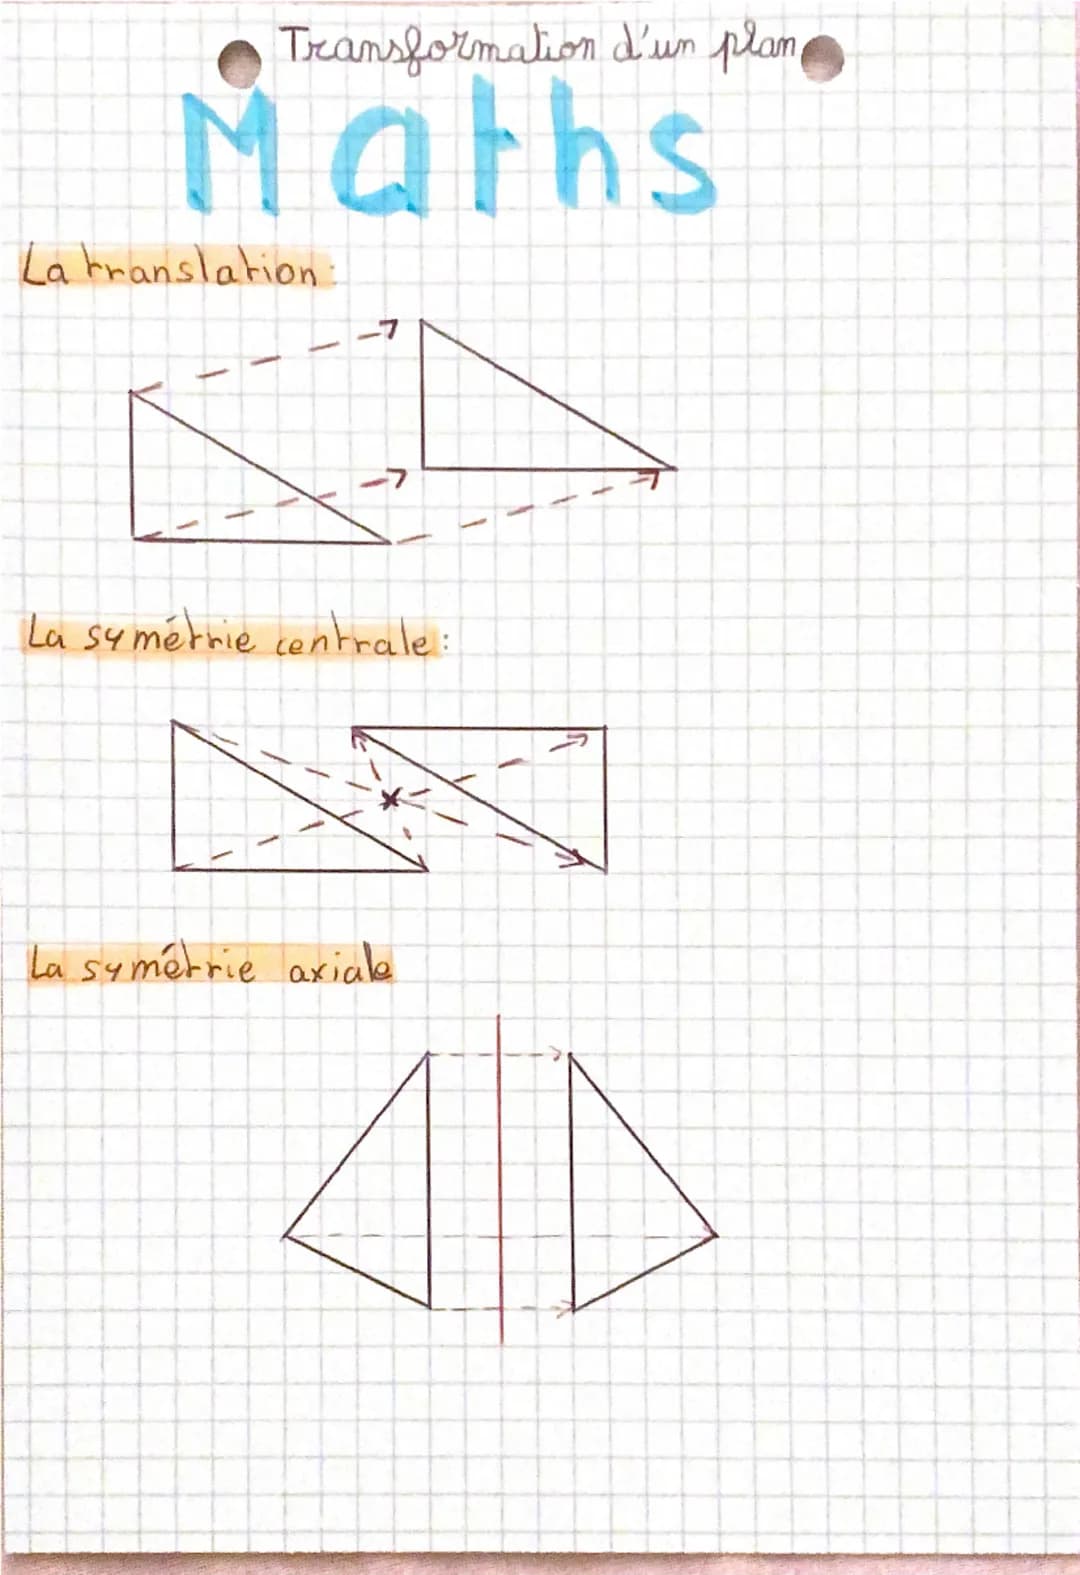 Transformation d'un plan
Maths
La translation:
La symétrie centrale:
La symétrie axiale